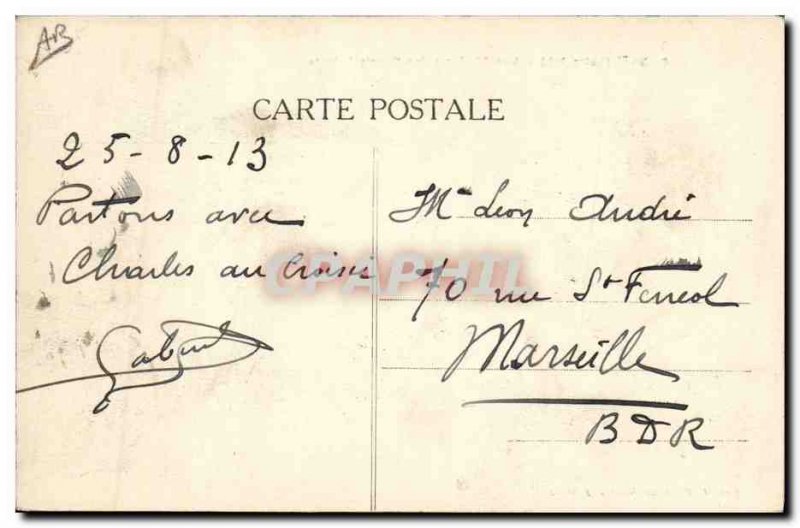 AB
CARTE POSTALE
25-8-13
Partons avec
Charles au Croisic
Mr Leon André
70 rue St Ferreol
Marseille
BDR
CPAPHIL